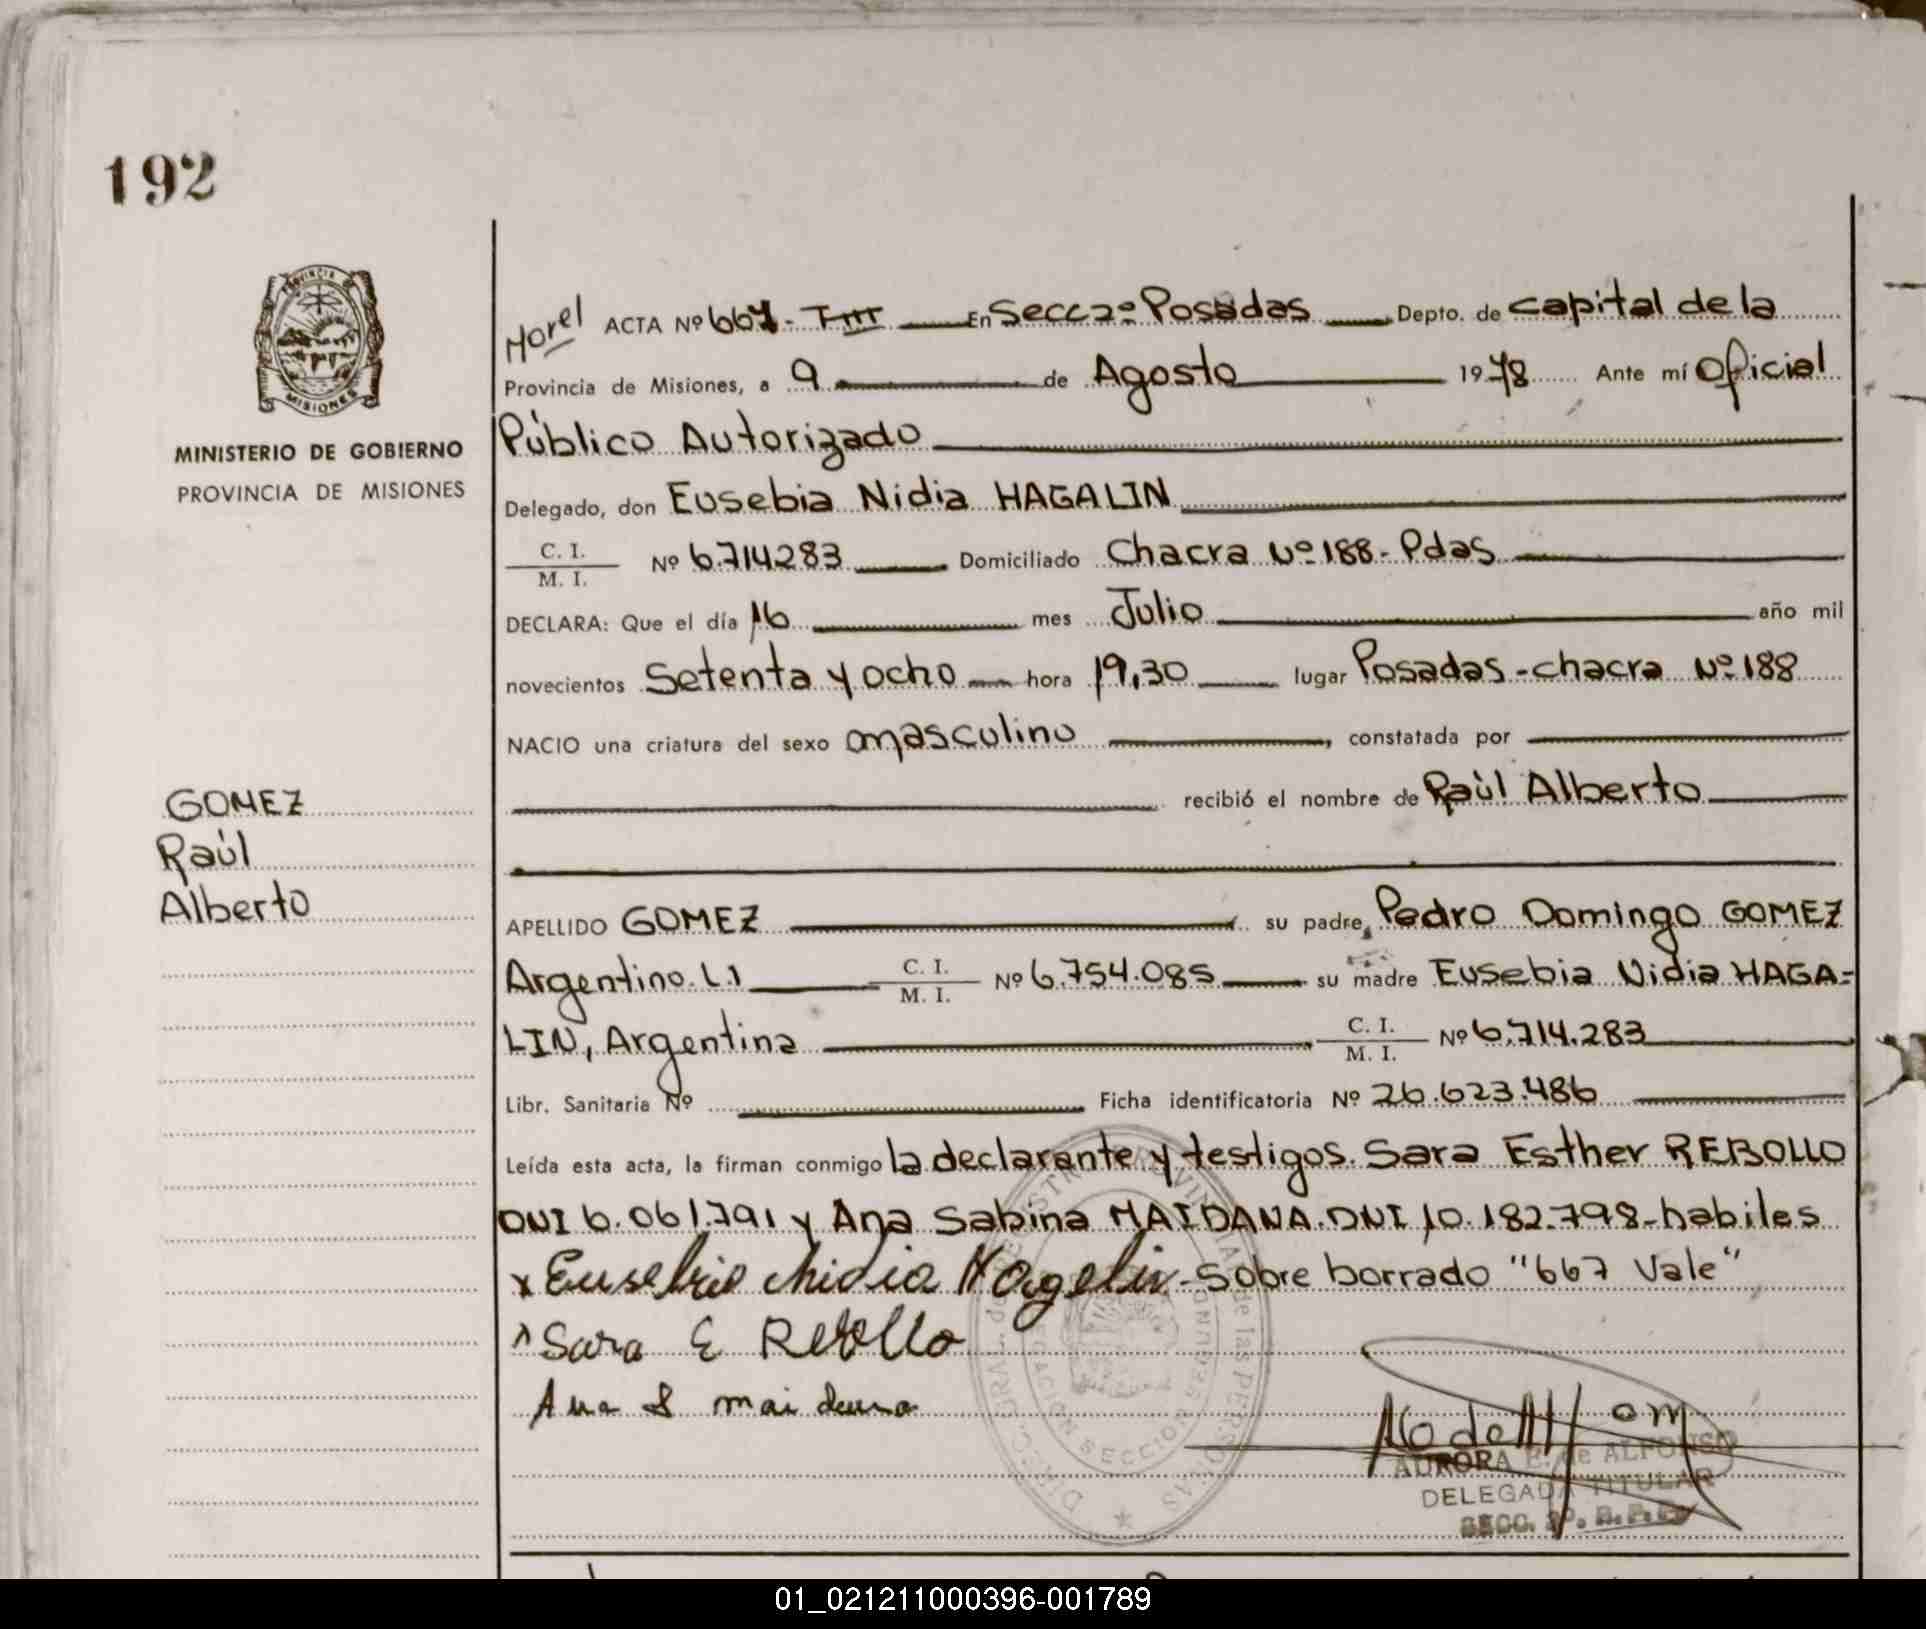 192
PROVINCIA
MISIONES
MINISTERIO DE GOBIERNO
PROVINCIA DE MISIONES
Morel ACTA Nº 667 - T III En Secc 2º Posadas Depto. de Capital de la
Provincia de Misiones, a 9 de Agosto 1978 Ante mí Oficial
Público Autorizado
Delegado, don Eusebia Nidia HAGALIN
C. I.
M. I. Nº 6.714283 Domiciliado Chacra Nº 188 - Pdas
DECLARA: Que el día 16 mes Julio año mil
novecientos Setenta y ocho hora 19,30 lugar Posadas - chacra Nº 188
NACIO una criatura del sexo masculino, constatada por
recibió el nombre de Raúl Alberto
GOMEZ
Raúl
Alberto
APELLIDO GOMEZ su padre, Pedro Domingo GOMEZ
Argentino. L.1 C. I. M. I. Nº 6.754.085 su madre Eusebia Nidia HAGA=
LIN, Argentina C. I. M. I. Nº 6.714.283
Libr. Sanitaria Nº Ficha identificatoria Nº 26.623.486
Leída esta acta, la firman conmigo la declarante y testigos. Sara Esther REBOLLO
DNI 6.061.791 y Ana Sabina MAIDANA. DNI 10.182.798 - habiles
x Eusebia Nidia Hagelin - Sobre borrado "667 Vale"
Sara E Rebollo
Ana S maidana
AURORA E. de ALFONSO
DELEGADA TITULAR
SECC. 2º. R.P.P.
01_021211000396-001789